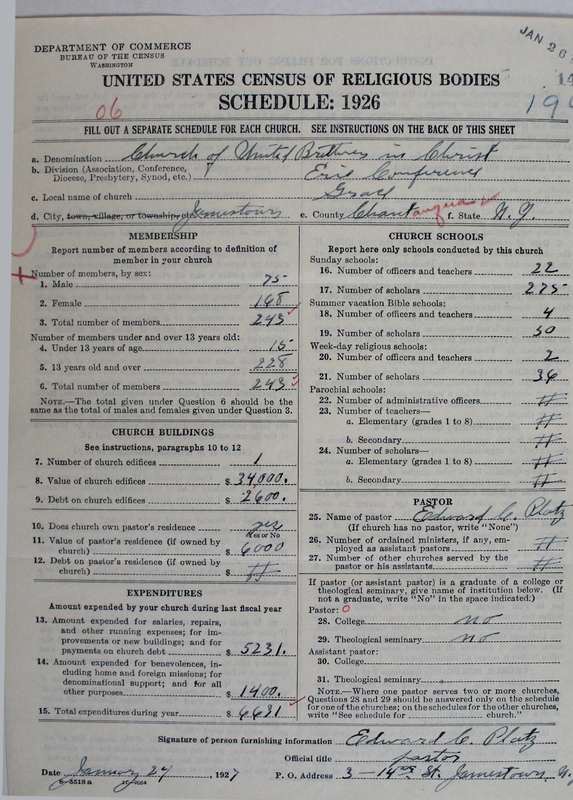 JAN 26
DEPARTMENT OF COMMERCE
BUREAU OF THE CENSUS
WASHINGTON
UNITED STATES CENSUS OF RELIGIOUS BODIES
SCHEDULE: 1926
06
FILL OUT A SEPARATE SCHEDULE FOR EACH CHURCH. SEE INSTRUCTIONS ON THE BACK OF THIS SHEET
a. Denomination Church of United Brethren in Christ
b. Division (Association, Conference, Diocese, Presbytery, Synod, etc.) Erie Conference
c. Local name of church Grace
d. City, town, village, or township of Jamestown e. County Chautauqua f. State N.Y.
MEMBERSHIP
Report number of members according to definition of
member in your church
Number of members, by sex:
1. Male 75
2. Female 168
3. Total number of members 243
Number of members under and over 13 years old:
4. Under 13 years of age 15
5. 13 years old and over 228
6. Total number of members 243
NOTE.—The total given under Question 6 should be the
same as the total of males and females given under Question 3.
CHURCH BUILDINGS
See instructions, paragraphs 10 to 12
7. Number of church edifices 1
8. Value of church edifices $34,000.
9. Debt on church edifices $2,600.
10. Does church own pastor's residence yes
Yes or No
11. Value of pastor's residence (if owned by
church) $6000
12. Debt on pastor's residence (if owned by
church) $
EXPENDITURES
Amount expended by your church during last fiscal year
13. Amount expended for salaries, repairs,
and other running expenses; for im-
provements or new buildings; and for
payments on church debt $5231.
14. Amount expended for benevolences, in-
cluding home and foreign missions; for
denominational support; and for all
other purposes $1400.
15. Total expenditures during year $6631
CHURCH SCHOOLS
Report here only schools conducted by this church
Sunday schools:
16. Number of officers and teachers 22
17. Number of scholars 275
Summer vacation Bible schools:
18. Number of officers and teachers 4
19. Number of scholars 50
Week-day religious schools:
20. Number of officers and teachers 2
21. Number of scholars 36
Parochial schools:
22. Number of administrative officers
23. Number of teachers—
a. Elementary (grades 1 to 8)
b. Secondary
24. Number of scholars—
a. Elementary (grades 1 to 8)
b. Secondary
PASTOR
25. Name of pastor Edward C. Platz
(If church has no pastor, write "None")
26. Number of ordained ministers, if any, em-
ployed as assistant pastors
27. Number of other churches served by the
pastor or his assistants
If pastor (or assistant pastor) is a graduate of a college or
theological seminary, give name of institution below. (If
not a graduate, write "No" in the space indicated.)
Pastor: 0
28. College no
29. Theological seminary no
Assistant pastor:
30. College
31. Theological seminary
NOTE.—Where one pastor serves two or more churches,
Questions 28 and 29 should be answered only on the schedule
for one of the churches; on the schedules for the other churches,
write "See schedule for church."
Signature of person furnishing information Edward C. Platz
Official title pastor
Date January 24, 1927 P. O. Address 3-14th St. Jamestown, N.Y.
8-5518a